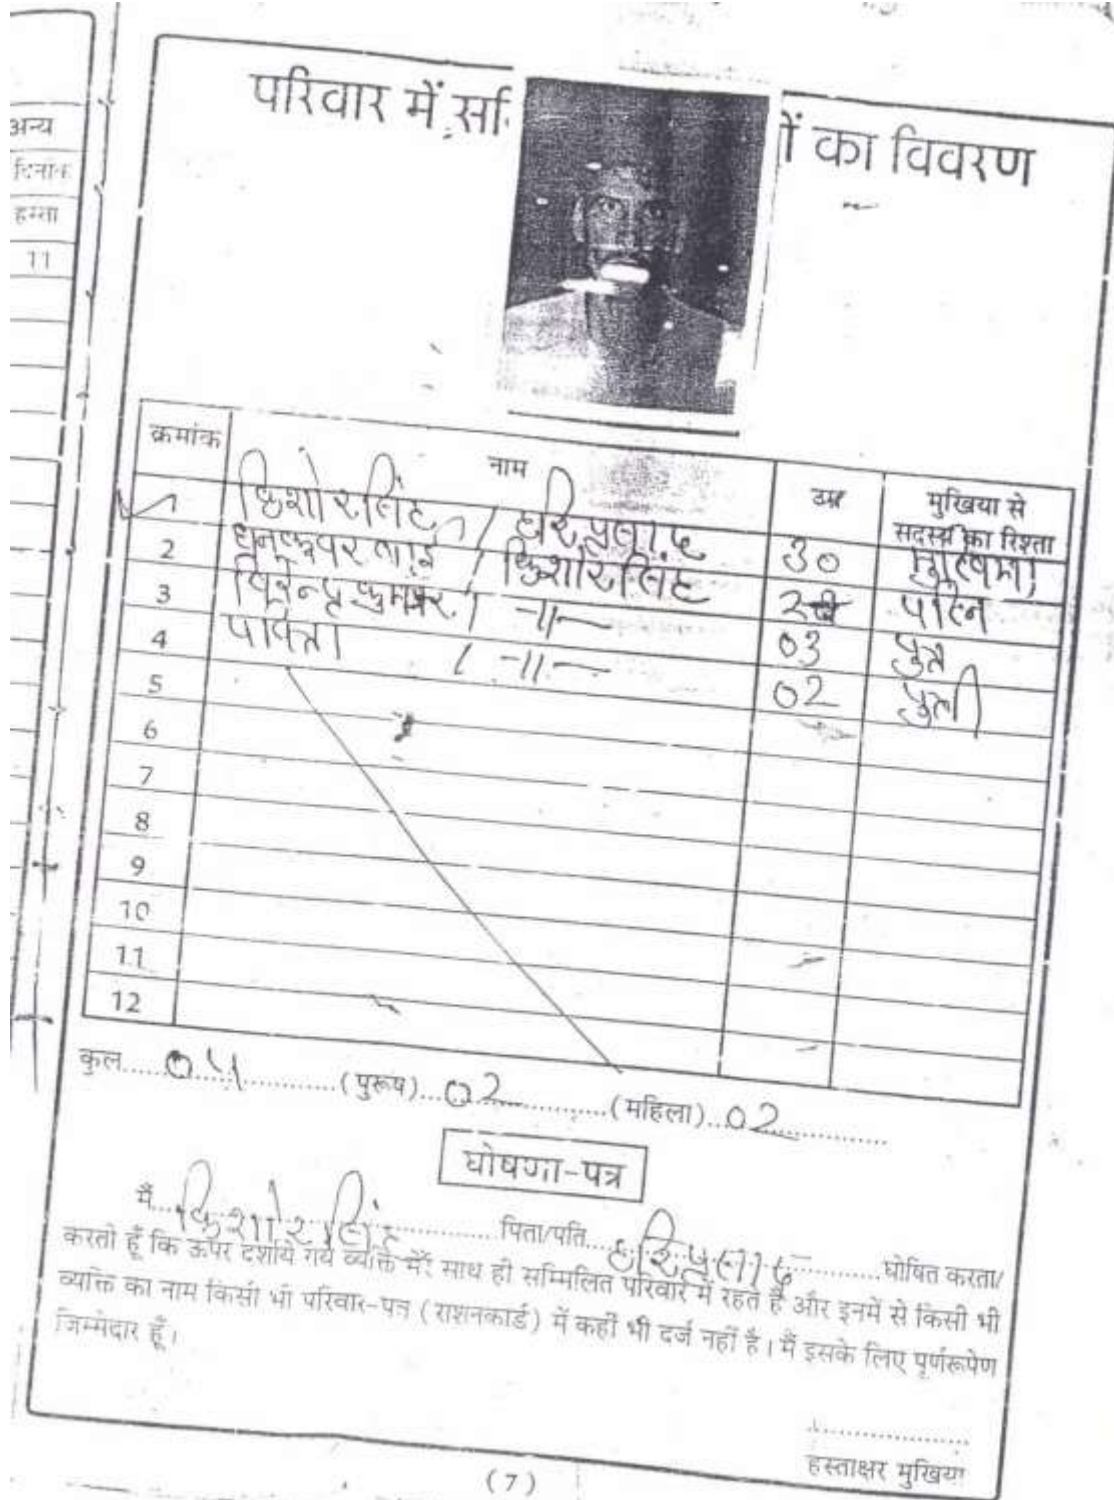 अन्य
दिनांक
हस्ता
11
परिवार में ों का विवरण
क्रमांक नाम उम्र मुखिया से सदस्य का रिश्ता
1 किशोर सिंह / हरिप्रसाद 30
2 धनकुवर बाई / किशोर सिंह पत्नि
3 / -11- 03 पुत्र
4 / -11- 02 पुत्री
5
6
7
8
9
10
11
12
कुल.....04............(पुरूष)...02............(महिला)..02............
घोषणा-पत्र
मैं...किशोर सिंह............पिता/पति...हरिप्रसाद............घोषित करता/
करती हूँ कि ऊपर दर्शाये गये व्यक्ति मेरे साथ ही सम्मिलित परिवार में रहते हैं और इनमें से किसी भी
व्यक्ति का नाम किसी भी परिवार-पत्र (राशनकार्ड) में कहीं भी दर्ज नहीं है। मैं इसके लिए पूर्णरूपेण
जिम्मेदार हूँ।
हस्ताक्षर मुखिया
(7)